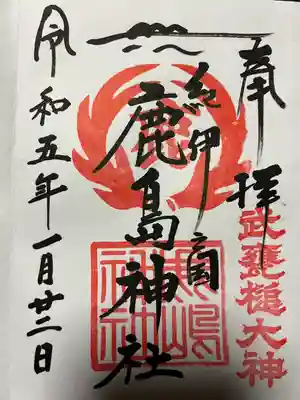 奉拝
武甕槌大神
紀伊
鹿島神社
鹿嶋
神社
令和五年一月廿二日